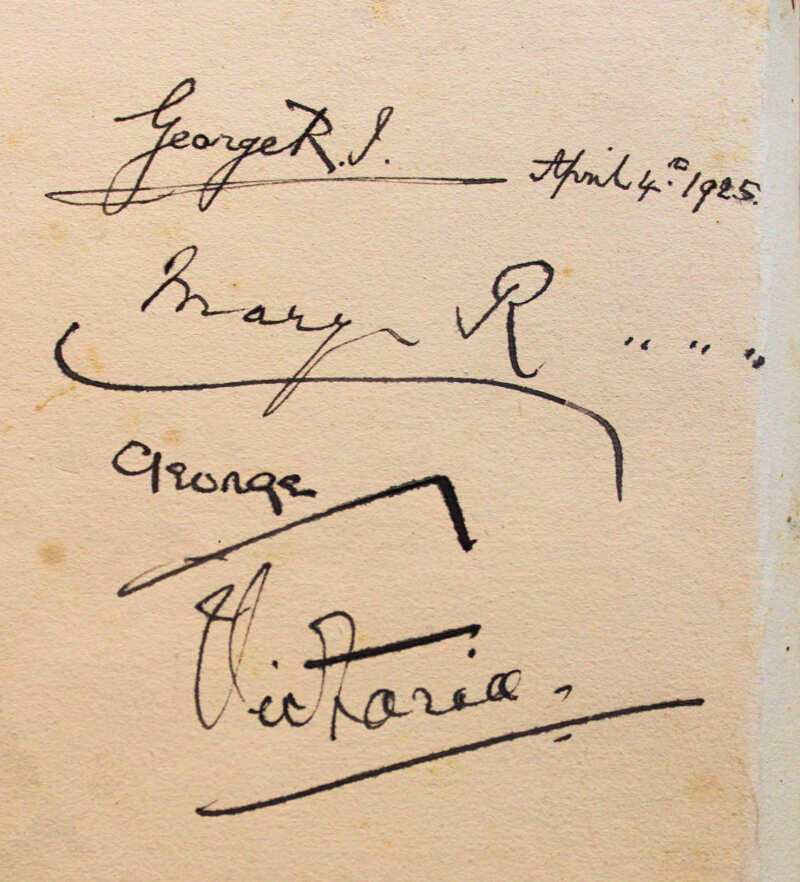 George R.I. April 4th 1925.
Mary R " " "
George
Victoria.